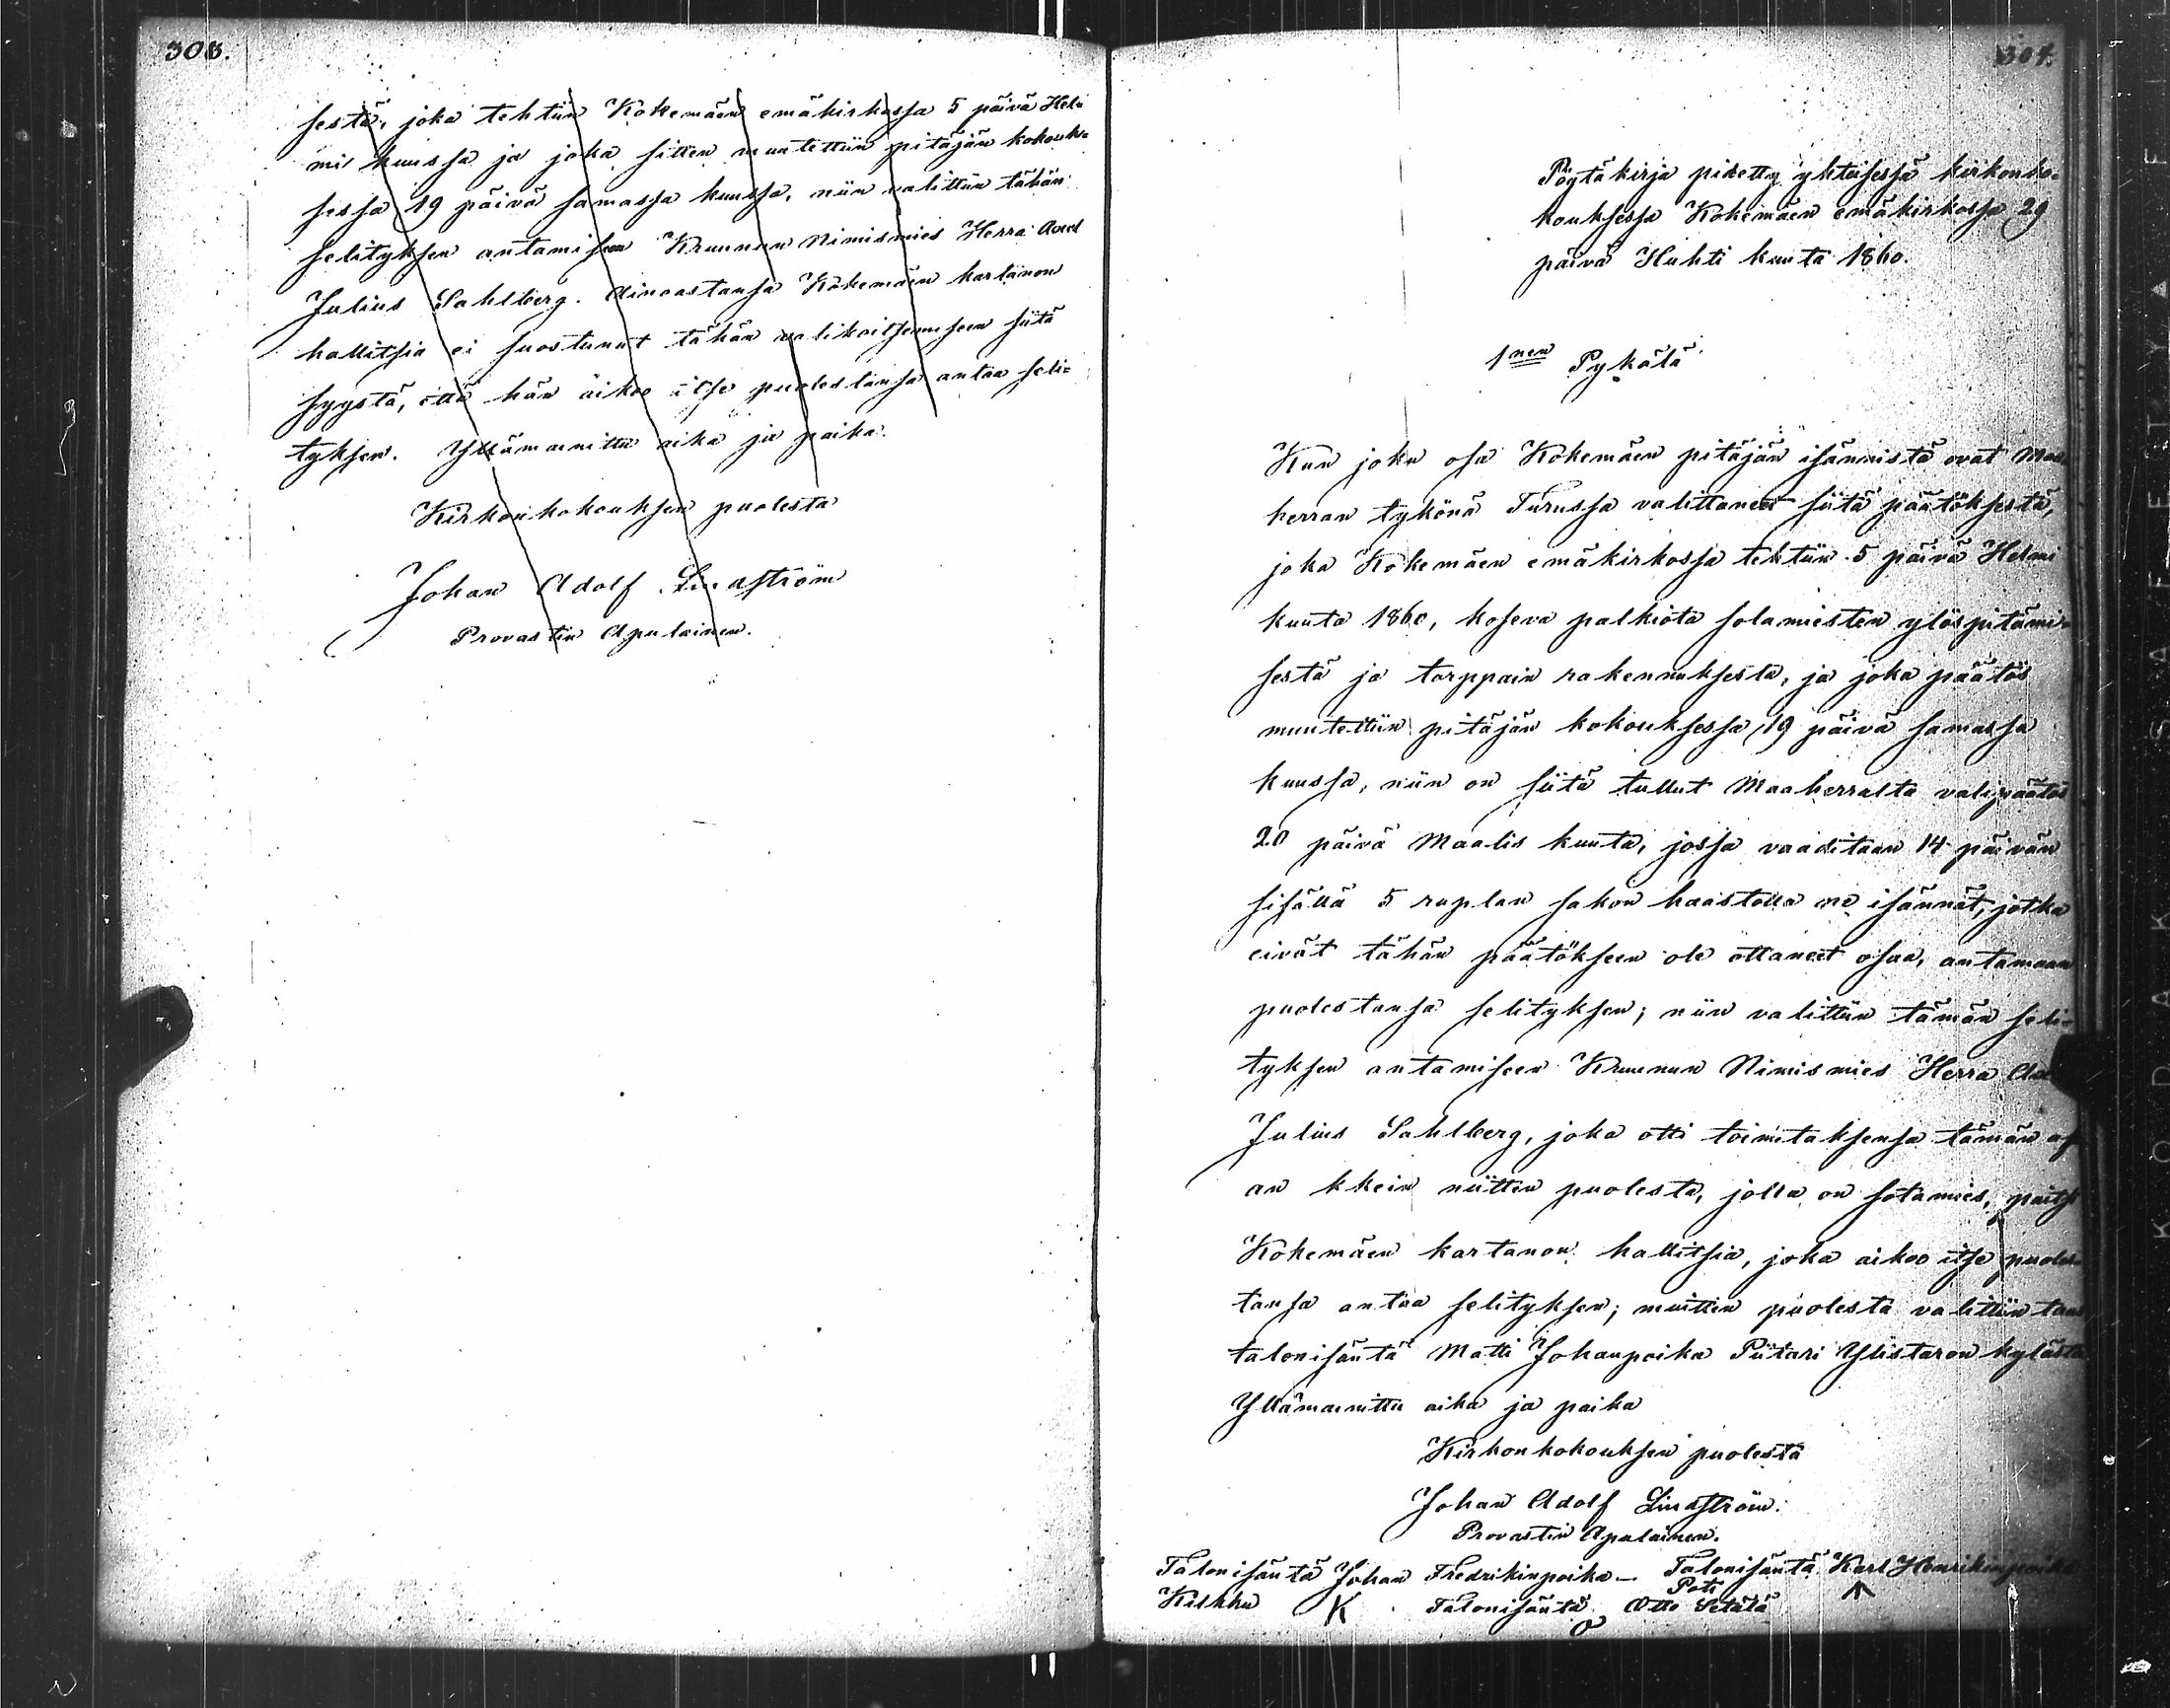 303.
sestä, joka tehtiin Kokemäen emäkirkossa 5 päivä Hel-
mi kuussa ja joka sitten muutettiin pitäjän kokouk-
sessa 19 päivä samassa kuussa, niin valittiin tähän
selityksen antamiseen Kruunun Nimismies Herra Axel
Julius Sahlberg. Ainoastansa Kokemäen kartanon
hallitsia ei suostunut tähän valikoitsemuseen siitä
syystä, että hän aikoo itse puolestansa antaa seli-
tyksen. Yllämainittu aika ja paika.
Kirkonkokouksen puolesta
Johan Adolf Lindström
Provastin Apulainen.
304.
Pöytäkirja pidetty yhteisessä kirkonko-
kouksessa Kokemäen emäkirkossa 29
päivä Huhti kuuta 1860.
1nen Pykälä
Kun joku osa Kokemäen pitäjän isännistä ovat Maa
herran tykönä Turussa valittaneet siitä päätöksestä,
joka Kokemäen emäkirkossa tehtiin 5 päivä Helmi
kuuta 1860, koseva palkiota sotamiesten ylöspitämi-
sestä ja torppain rakennuksesta, ja joka päätös
muutettiin pitäjän kokouksessa 19 päivä samassa
kuussa, niin on siitä tullut Maaherralta välipäätös
20 päivä Maalis kuuta, jossa vaaditaan 14 päivän
sisällä 5 ruplan sakon haastolla ne isännät, jotka
eivät tähän päätökseen ole ottaneet osaa, antamaan
puolestansa selityksen; niin valittiin tämän seli-
tyksen antamiseen Kruunun Nimismies Herra
Julius Sahlberg, joka otti toimitaksensa tämän as
an kkein niitten puolesta, jolla on sotamies, paitsi
Kokemäen kartanon hallitsia, joka aikoo itse puoles-
tansa antaa selityksen; muitten puolesta valittiin taas
talonisäntä Matti Johanpoika Piitari Ylistaron kylästä
Yllämainittu aika ja paika
Kirkonkokouksen puolesta
Johan Adolf Lindström.
Provastin Apulainen.
Talonisäntä Johan Fredrikinpoika – Talonisäntä Karl Henrikinpoika
Kiskku K Poti
Talonisäntä Otto Setälä